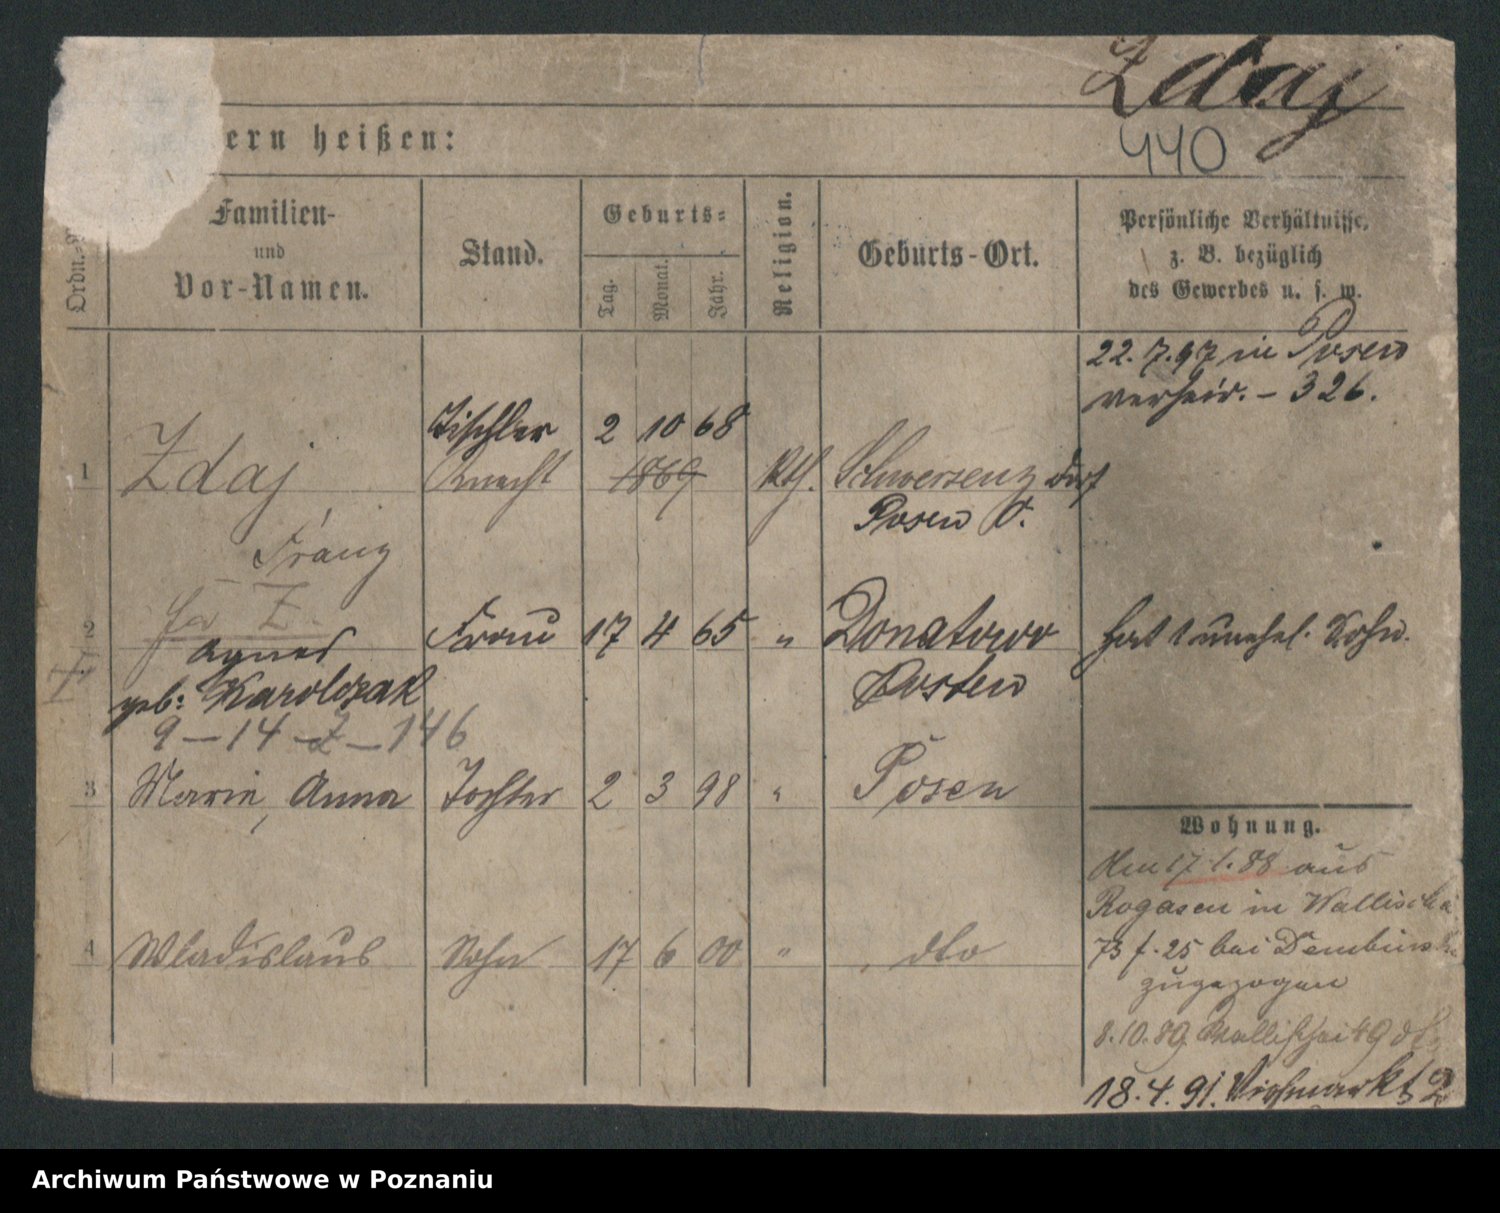 Zdaj
440
ern heißen:
Ordn.
Familien-
und
Vor-Namen.
Stand.
Geburts-
Tag.
Monat.
Jahr.
Religion.
Geburts-Ort.
Persönliche Verhältnisse,
z. B. bezüglich
des Gewerbes u. s. w.
22.7.97 in Posen
verheir. - 326.
Tischler 2 10 68
1 Zdaj Knecht 1869 Kth. Schwersenz Dorf
Franz Posen O.
2 Z. Frau 17 4 65 " Donatowo hat 1 unehel. Sohn.
Agnes
geb: Karolczak Kosten
9 - 14 - Z - 146
3 Marie, Anna Tochter 2 3 98 " Posen
Wohnung.
Am 17.1.88 aus
Rogasen in Wallischei
4 Wladislaus Sohn 17 6 00 " dto
73 f. 25 bei Dembinski
zugezogen
8.10.89 Wallischei 49
18.4.91. Viehmarkt 2